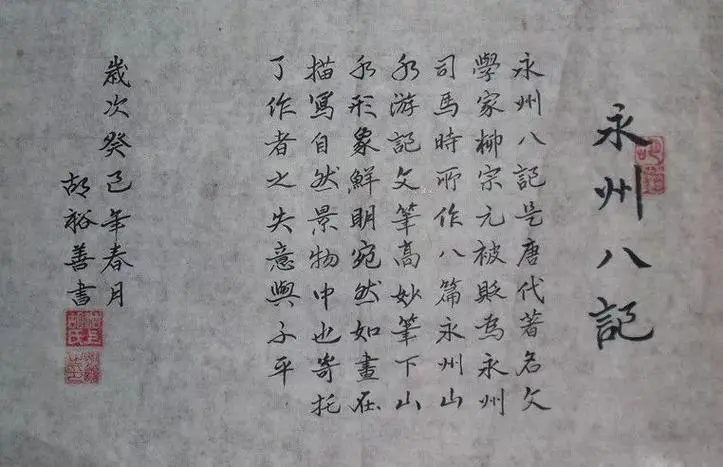 永州八記
永州八記是唐代著名文
學家柳宗元被貶為永州
司馬時所作八篇永州山
水游記文筆高妙筆下山
水形象鮮明宛然如畫在
描寫自然景物中也寄托
了作者之失意與不平
歲次癸巳年春月
胡裕善書